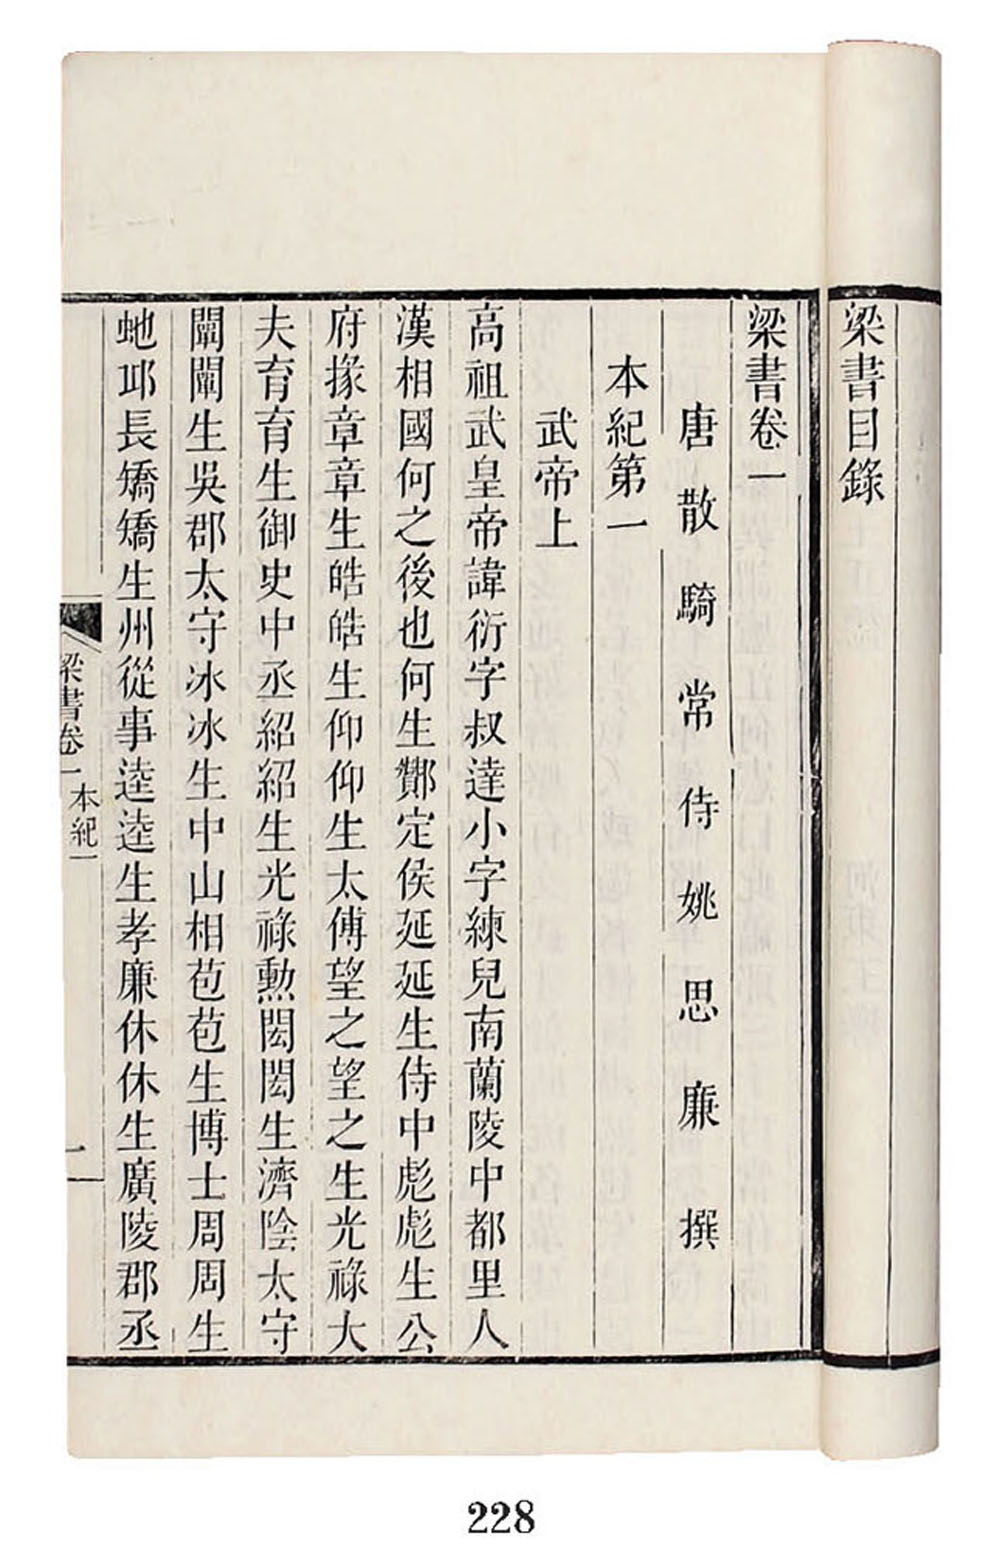 梁書目錄
梁書卷一
唐散騎常侍姚思廉撰
本紀第一
武帝上
高祖武皇帝諱衍字叔達小字練兒南蘭陵中都里人
漢相國何之後也何生酇定侯延延生侍中彪彪生公
府掾章章生皓皓生仰仰生太傅望之望之生光祿大
夫育育生御史中丞紹紹生光祿勳閎閎生濟陰太守
闡闡生吳郡太守冰冰生中山相苞苞生博士周周生
虵邱長矯矯生州從事逵逵生孝廉休休生廣陵郡丞
梁書卷一
本紀一
一
228